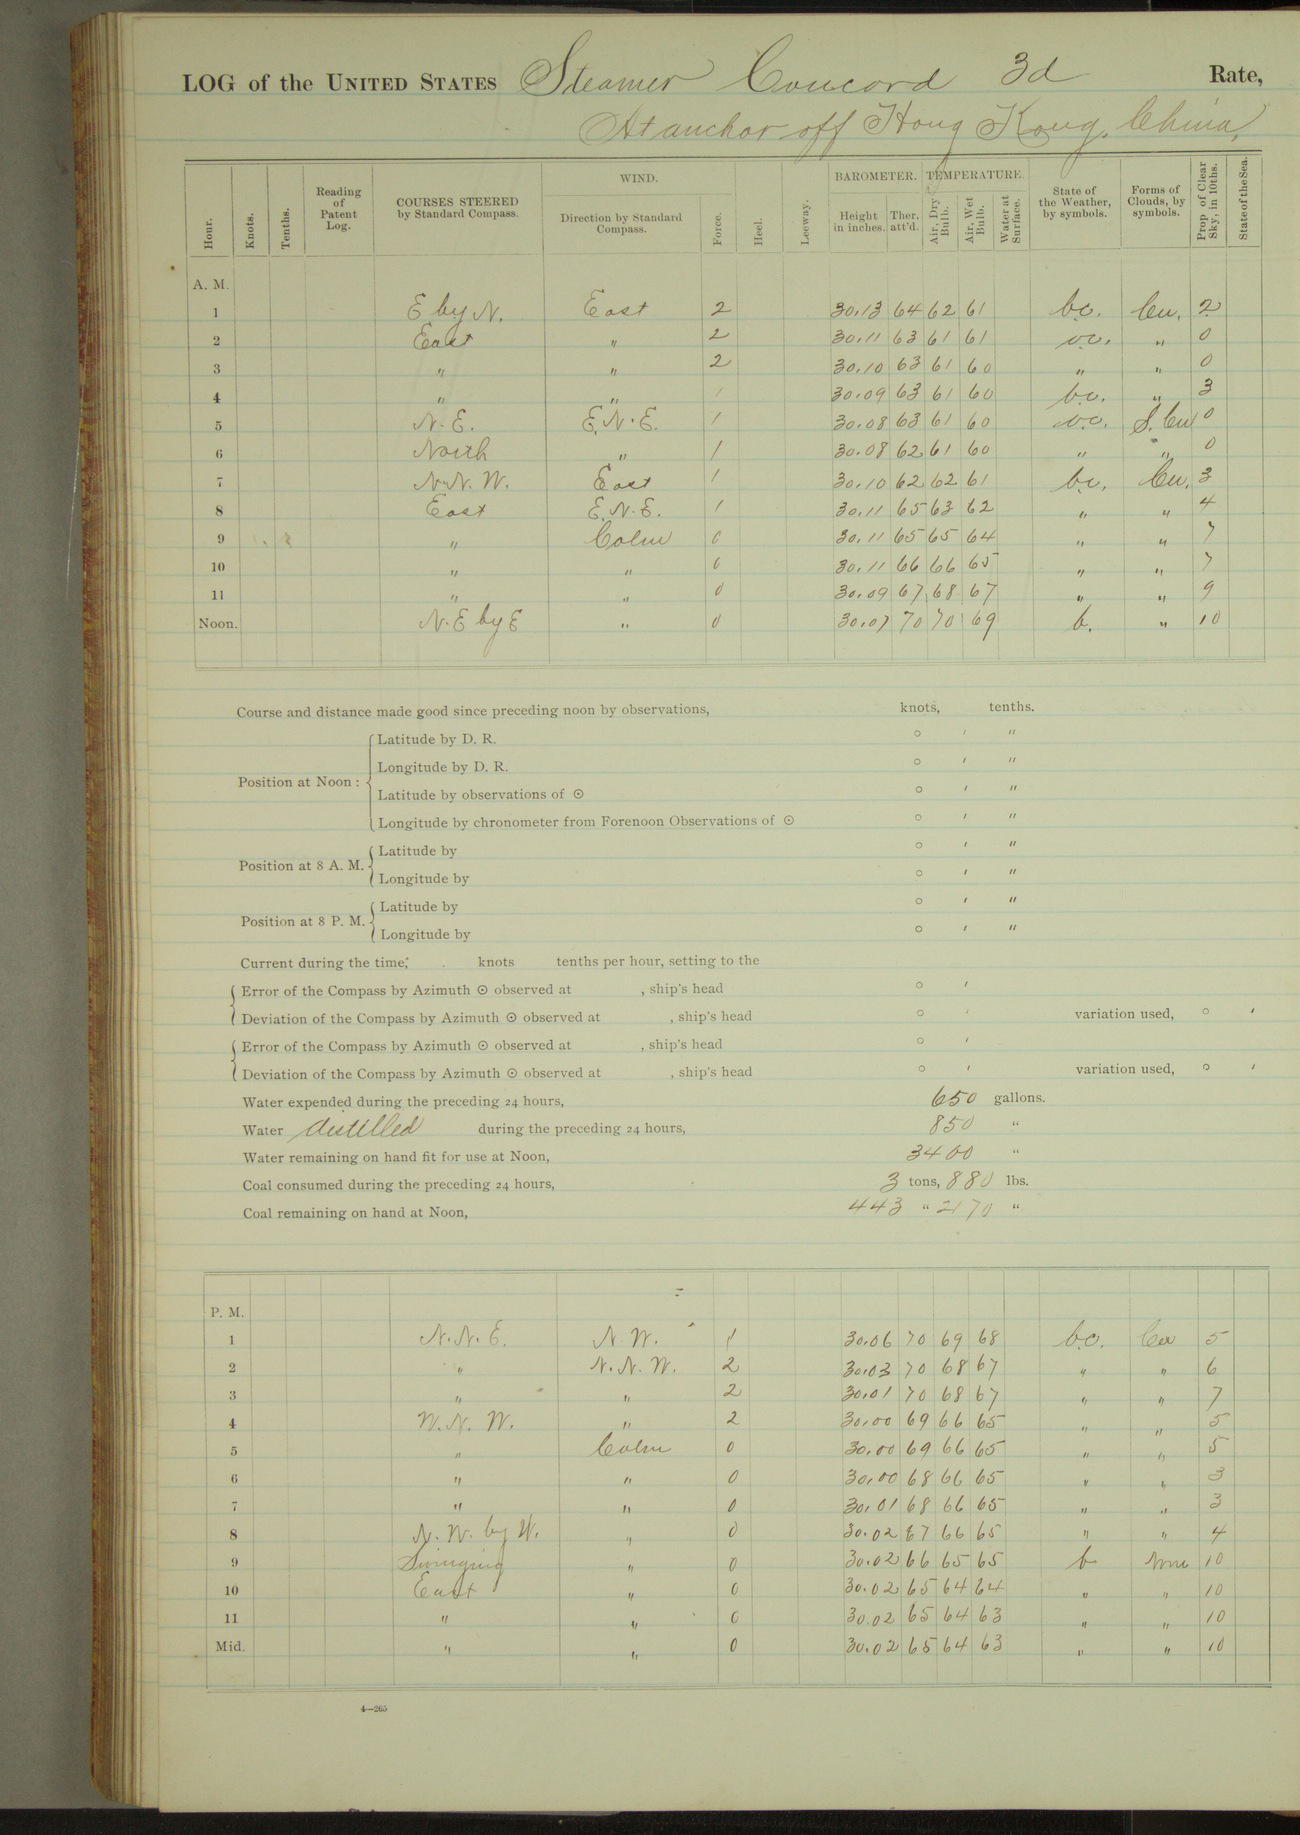 LOG of the UNITED STATES Steamer Concord 3d Rate,
At anchor off Hong Kong, China,
Hour. Knots. Tenths. Reading of Patent Log. COURSES STEERED by Standard Compass. WIND. Direction by Standard Compass. Force. Heel. Leeway. BAROMETER. Height in inches. Ther. att'd. TEMPERATURE. Air, Dry Bulb. Air, Wet Bulb. Water at Surface. State of the Weather, by symbols. Forms of Clouds, by symbols. Prop. of Clear Sky, in 10ths. State of the Sea.
A. M.
1 E by N. East 2 30.13 64 62 61 bc. Cu. 2
2 East " 2 30.11 63 61 61 oc. " 0
3 " " 2 30.10 63 61 60 " " 0
4 " " 1 30.09 63 61 60 bc. " 3
5 N. E. E.N.E. 1 30.08 63 61 60 oc. S.Cu 0
6 North " 1 30.08 62 61 60 " " 0
7 N.N.W. East 1 30.10 62 62 61 bc. Cu. 3
8 East E.N.E. 1 30.11 65 63 62 " " 4
9 " Calm 0 30.11 65 65 64 " " 7
10 " " 0 30.11 66 66 65 " " 7
11 " " 0 30.09 67 68 67 " " 9
Noon. N.E by E " 0 30.07 70 70 69 b. " 10
Course and distance made good since preceding noon by observations, knots, tenths.
Position at Noon: Latitude by D. R. ° ′ ″
Longitude by D. R. ° ′ ″
Latitude by observations of ⊙ ° ′ ″
Longitude by chronometer from Forenoon Observations of ⊙ ° ′ ″
Position at 8 A. M. Latitude by ° ′ ″
Longitude by ° ′ ″
Position at 8 P. M. Latitude by ° ′ ″
Longitude by ° ′ ″
Current during the time, knots tenths per hour, setting to the
Error of the Compass by Azimuth ⊙ observed at , ship's head ° ′
Deviation of the Compass by Azimuth ⊙ observed at , ship's head ° ′ variation used, ° ′
Error of the Compass by Azimuth ⊙ observed at , ship's head ° ′
Deviation of the Compass by Azimuth ⊙ observed at , ship's head ° ′ variation used, ° ′
Water expended during the preceding 24 hours, 650 gallons.
Water distilled during the preceding 24 hours, 850 "
Water remaining on hand fit for use at Noon, 3400 "
Coal consumed during the preceding 24 hours, 3 tons, 880 lbs.
Coal remaining on hand at Noon, 443 " 2170 "
P. M.
1 N.N.E. N.W. 1 30.06 70 69 68 bc. Cu 5
2 " N.N.W. 2 30.03 70 68 67 " " 6
3 " " 2 30.01 70 68 67 " " 7
4 W.N.W. " 2 30.00 69 66 65 " " 5
5 " Calm 0 30.00 69 66 65 " " 5
6 " " 0 30.00 68 66 65 " " 3
7 " " 0 30.01 68 66 65 " " 3
8 N.W. by W. " 0 30.02 67 66 65 " " 4
9 Swinging " 0 30.02 66 65 65 b None 10
10 East " 0 30.02 65 64 64 " " 10
11 " " 0 30.02 65 64 63 " " 10
Mid. " " 0 30.02 65 64 63 " " 10
4—265